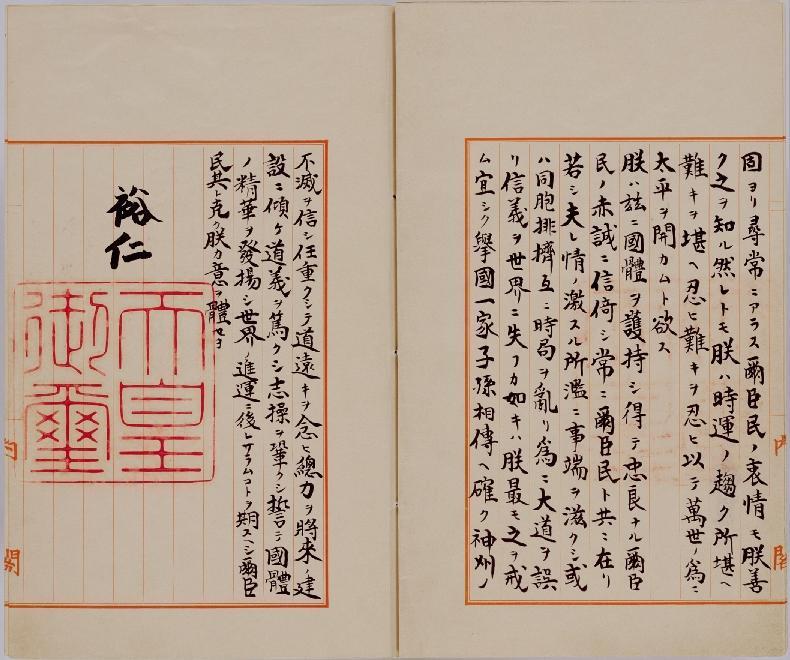 固ヨリ尋常ニアラス爾臣民ノ衷情モ朕善
ク之ヲ知ル然レトモ朕ハ時運ノ趨ク所堪ヘ
難キヲ堪ヘ忍ヒ難キヲ忍ヒ以テ萬世ノ爲ニ
太平ヲ開カムト欲ス
朕ハ茲ニ國體ヲ護持シ得テ忠良ナル爾臣
民ノ赤誠ニ信倚シ常ニ爾臣民ト共ニ在リ
若シ夫レ情ノ激スル所濫ニ事端ヲ滋クシ或
ハ同胞排擠互ニ時局ヲ亂リ爲ニ大道ヲ誤
リ信義ヲ世界ニ失フカ如キハ朕最モ之ヲ戒
ム宜シク擧國一家子孫相傳ヘ確ク神州ノ
不滅ヲ信シ任重クシテ道遠キヲ念ヒ總力ヲ將來ノ建
設ニ傾ケ道義ヲ篤クシ志操ヲ鞏クシ誓テ國體
ノ精華ヲ發揚シ世界ノ進運ニ後レサラムコトヲ期スヘシ爾臣
民其レ克ク朕カ意ヲ體セヨ
裕仁
天皇
御璽
内閣
内閣